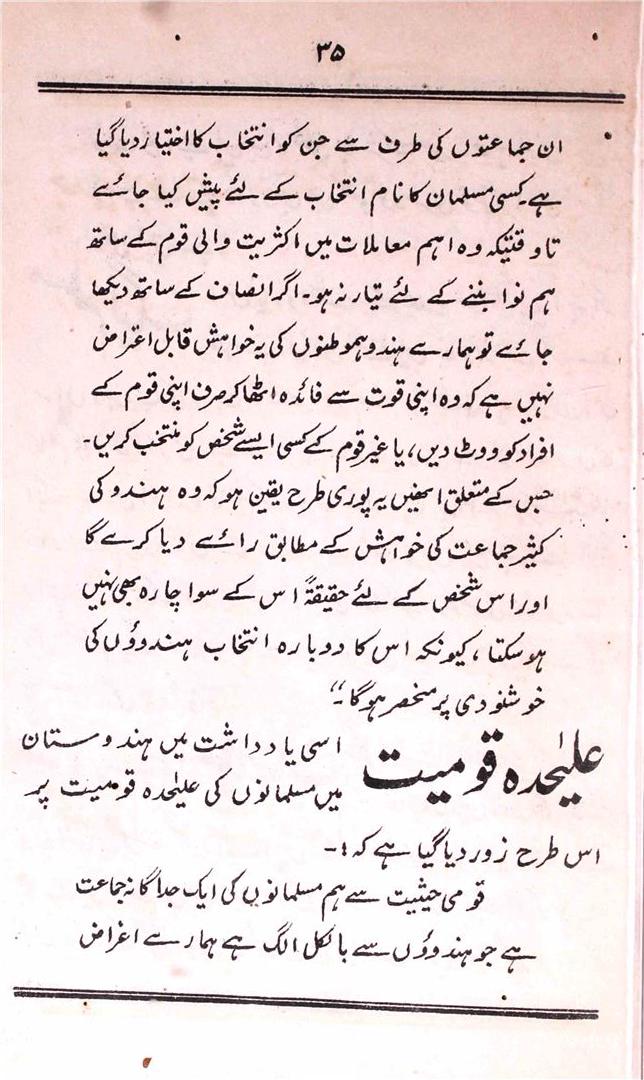 ۳۵
ان جماعتوں کی طرف سے جن کو انتخاب کا اختیار دیا گیا
ہے۔ کسی مسلمان کا نام انتخاب کے لئے پیش کیا جائے
تاوقتیکہ وہ اہم معاملات میں اکثریت والی قوم کے ساتھ
ہم نوا بننے کے لئے تیار نہ ہو۔ اگر انصاف کے ساتھ دیکھا
جائے تو ہمارے ہندو ہموطنوں کی یہ خواہش قابل اعتراض
نہیں ہے کہ وہ اپنی قوت سے فائدہ اٹھا کر صرف اپنی قوم کے
افراد کو ووٹ دیں، یا غیر قوم کے کسی ایسے شخص کو منتخب کریں۔
جس کے متعلق انھیں یہ پوری طرح یقین ہو کہ وہ ہندو کی
کثیر جماعت کی خواہش کے مطابق رائے دیا کرے گا
اور اس شخص کے لئے حقیقۃً اس کے سوا چارہ بھی نہیں
ہو سکتا، کیونکہ اس کا دوبارہ انتخاب ہندوؤں کی
خوشنودی پر منحصر ہوگا۔“
علیٰحدہ قومیت
اسی یادداشت میں ہندوستان
میں مسلمانوں کی علیٰحدہ قومیت پر
اس طرح زور دیا گیا ہے کہ :۔
قومی حیثیت سے ہم مسلمانوں کی ایک جداگانہ جماعت
ہے جو ہندوؤں سے بالکل الگ ہے ہمارے اغراض